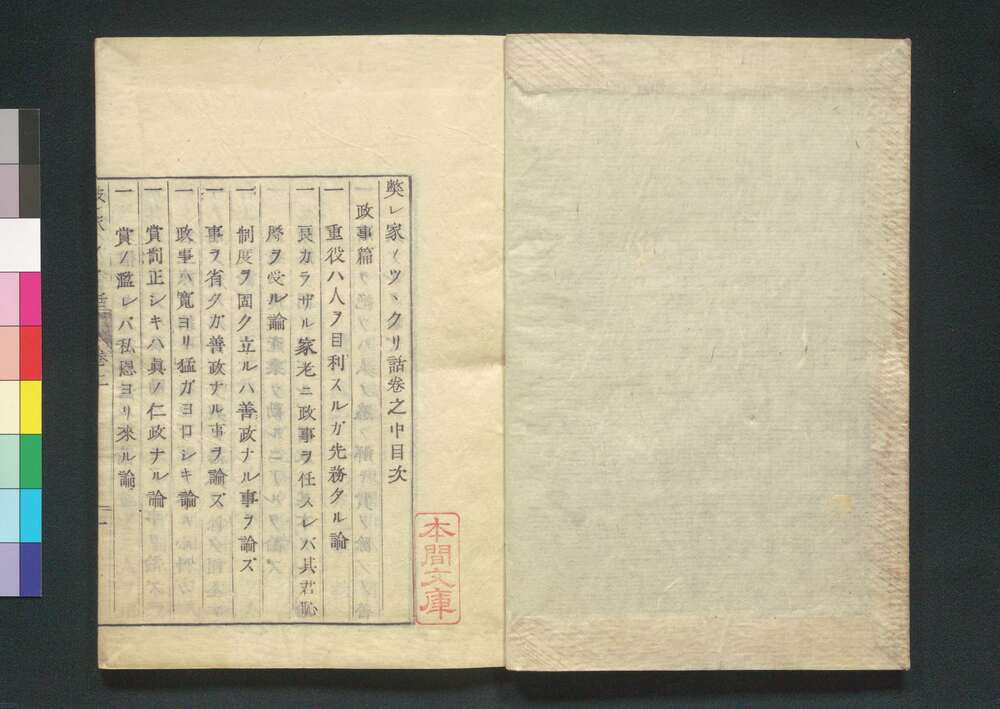 獘レ家ノツヽクリ話卷之中目次
一 政事篇
一 重役ハ人ヲ目利スルガ先務タル論
一 良カラザル家老ニ政事ヲ任スレバ其君恥
辱ヲ受ル論
一 制度ヲ固ク立ルハ善政ナル事ヲ論ズ
一 事ヲ省クガ善政ナル事ヲ論ズ
一 政事ハ寛ヨリ猛ガヨロシキ論
一 賞罰正シキハ眞ノ仁政ナル論
一 賞ノ濫レバ私恩ヨリ來ル論
本間文庫